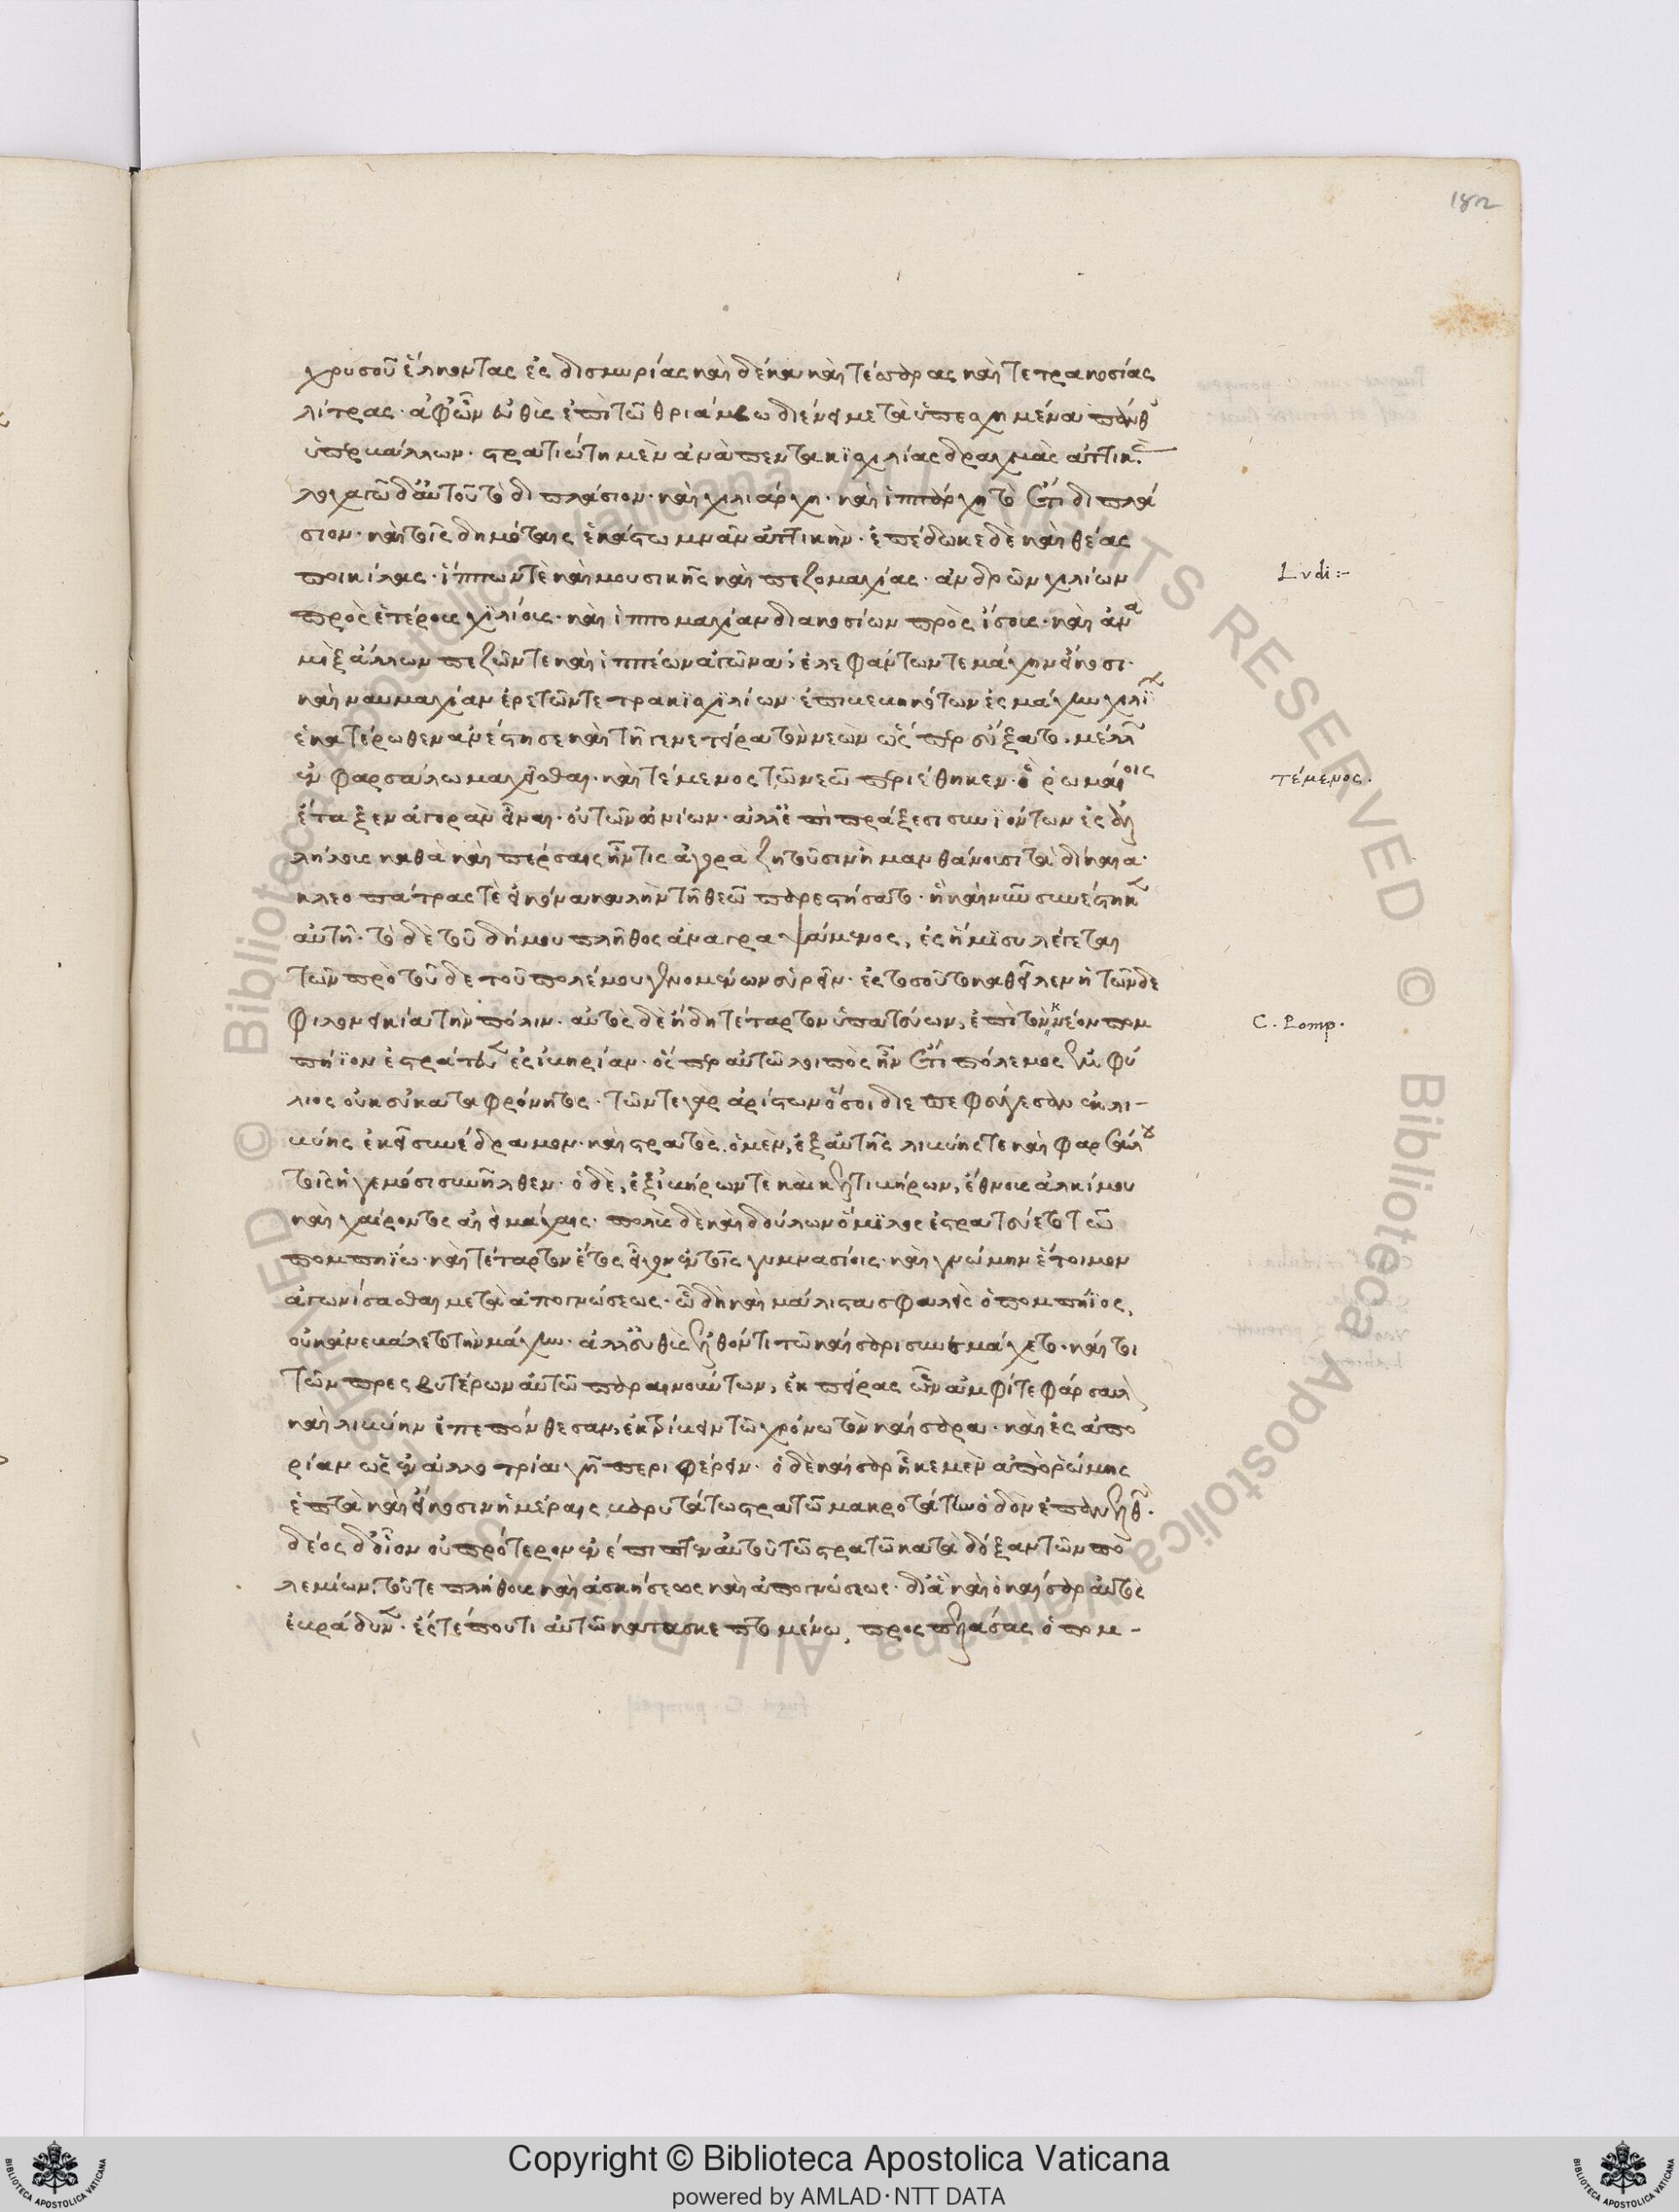 χρυσοῦ ἕλκοντας ἐς δισμυρίας καὶ δέκα καὶ τέσσαρας καὶ τετρακοσίας
λίτρας· ἀφ' ὧν εὐθὺς ἐπὶ τῶ θριάμβω διένειμε τὰ ὑπεσχημένα πάνθ'
ὑπερβάλλων· στρατιώτη μὲν ἀνὰ πεντακισχιλίας δραχμὰς ἀττικάς·
λοχαγῶ δ' αὐτοῦ τὸ διπλάσιον· καὶ χιλιάρχη· καὶ ἱππάρχη τὸ ἔτι διπλά
σιον· καὶ τοῖς δημόταις ἑκάστω μνᾶν ἀττικήν· ἐπέδωκε δὲ καὶ θέας
ποικίλας· ἵππων τὲ καὶ μουσικῆς καὶ πεζομαχίας· ἀνδρῶν χιλίων
πρὸς ἑτέρους χιλίους· καὶ ἱππομαχίαν διακοσίων πρὸς ἴσους· καὶ ἀνα
μὶξ ἄλλων πεζῶν τε καὶ ἱππέων ἀγῶνα· ἐλεφάντων τε μάχην εἴκοσι·
καὶ ναυμαχίαν ἐρετῶν τετρακισχιλίων· ἐπιβεβηκότων ἐς μάχην χιλίων
ἑκατέρωθεν ἀνέστησε καὶ τῆ γενετείρα τὸν νεὼν ὥσπερ εὔξατο· μέλλων
ἐν φαρσάλω μαχεῖσθαι· καὶ τέμενος τῶ νεῶ περιέθηκεν· ὃ ῥωμαίοις
ἔταξεν ἀγορὰν εἶναι· οὐ τῶν ὠνίων· ἀλλ' ἐπὶ πράξεσι συνϊόντων ἐς ἀλ
λήλους καθὰ καὶ πέρσαις ἦν τις ἀγορὰ ζητοῦσιν ἢ μανθάνουσι τὰ δίκαια·
κλεοπάτρας τὲ εἰκόνα καλὴν τῆ θεῶ παρεστήσατο· ἣ καὶ νῦν συνέστηκεν
αὐτῆ· τὸ δὲ τοῦ δήμου πλῆθος ἀναγραψάμενος, ἐς ἥμϊσυ λέγεται
τῶν πρὸ τοῦδε τοῦ πολέμου γενομένων εὑρεῖν· ἐς τοσοῦτο καθεῖλεν ἡ τῶνδε
φιλονεικία τὴν πόλιν· αὐτὸς δὲ ἤδη τέταρτον ὑπατεύων, ἐπὶ τὸν νέον πομ
πήϊον ἐστράτευεν ἐς ἰβηρίαν· ὅσπερ αὐτῶ λοιπὸς ἦν ἔτι πόλεμος ἐμφύ
λιος οὐκ εὐκαταφρόνητος· τῶν τε γὰρ ἀρίστων ὅσοι διεπεφεύγεσαν ἐκ λι-
βύης ἐκεῖ συνέδραμον· καὶ στρατὸς ὁ μὲν, ἐξ αὐτῆς λιβύης τε καὶ φαρσάλου
τοῖς ἡγεμόσι συνῆλθεν· ὁ δὲ, ἐξ ἰβήρων τὲ καὶ κελτιβήρων, ἔθνους ἀλκίμου
καὶ χαίροντος ἀεὶ μάχαις· πολὺς δὲ καὶ δούλων ὅμϊλος ἐστρατεύετο τῶ
πομπηΐω· καὶ τέταρτον ἔτος εἶχον ἐν τοῖς γυμνασίοις· καὶ γνώμην ἕτοιμον
ἀγωνίσασθαι μετὰ ἀπογνώσεως· ὧ δὴ καὶ μάλιστα σφαλεὶς ὁ πομπήϊος,
οὐκ ἀνεβάλετο τὴν μάχην· ἀλλ' εὐθὺς ἐλθόντι τῶ καίσαρι συνεμάχετο· καί τοι
τῶν πρεσβυτέρων αὐτῶ παραινούντων, ἐκ πείρας ὧν ἀμφί τε φάρσαλον
καὶ λιβύην ἐπεπόνθεσαν, ἐκτρίβειν τῶ χρόνω τὸν καίσαρα· καὶ ἐς ἀπο
ρίαν ὡς ἐν ἀλλοτρία γῆ περιφέρειν· ὁ δὲ καῖσαρ ἧκε μὲν ἀπὸ ῥώμης
ἑπτὰ καὶ εἴκοσιν ἡμέραις βαρυτάτω στρατῶ μακροτάτην ὁδὸν ἐπελθών·
δέος δ' οἷον οὐ πρότερον ἐνέπιπτεν αὐτοῦ τῶ στρατῶ κατὰ δόξαν τῶν πο
λεμίων, τοῦ τε πλήθους καὶ ἀσκήσεως καὶ ἀπογνώσεως· δι' ἃ καὶ ὁ καῖσαρ αὐτὸς
ἐβράδυνεν· ἔς τέ που τι αὐτῶ κατασκεπτομένω, προσπελάσας ὁ πομ-
182
Ludi:-
τέμενος.
C. Pomp.
Copyright © Biblioteca Apostolica Vaticana
powered by AMLAD·NTT DATA